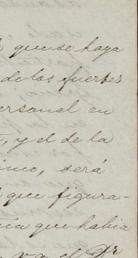 que se haya
de los fuertes
ersonal en
, y el de la
inco, será
que figura-
cia que habia
el Dr